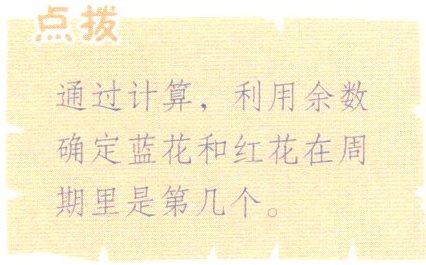 点拨
通过计算，利用余数
确定蓝花和红花在周
期里是第几个。